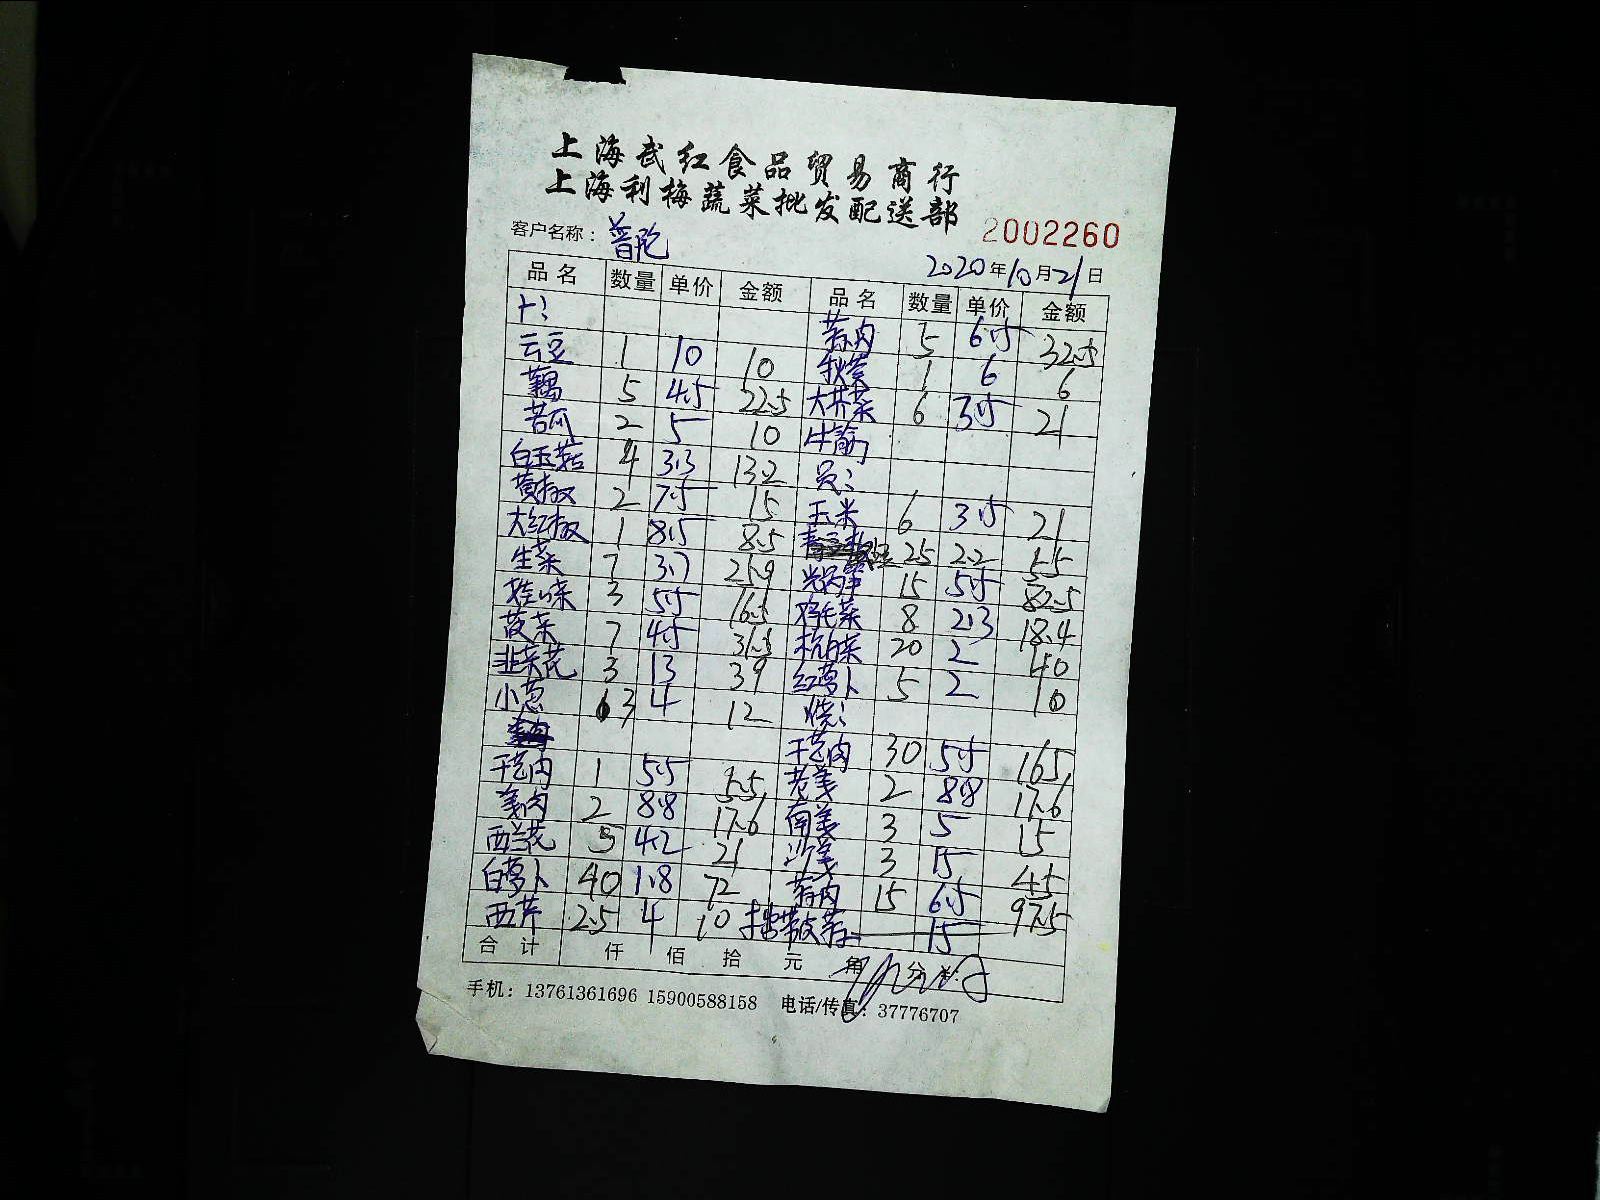 上海武红食品贸易商行
上海利梅蔬菜批发配送部
2002260
客户名称：普陀
2020年10月21日
品名 数量 单价 金额 品名 数量 单价 金额
蒜肉 5 6.5 32.5
云豆 1 10 10 秋葵 1 6 6
藕 5 4.5 22.5 大芹菜 6 3.5 21
苦瓜 2 5 10
白玉菇 4 3.3 13.2
黄椒 2 7.5 15 玉米 6 3.5 21
大红椒 1 8.5 8.5 25 2.2 55
生菜 7 3.7 25.9 光莴笋 15 5.5 82.5
3 5.5 16.5 鸡毛菜 8 2.3 18.4
菠菜 7 4.5 31.5 杭白菜 20 2 40
韭菜花 3 13 39 红萝卜 5 2 10
小葱 3 4 12
干葱肉 30 5.5 165
干葱肉 1 5.5 5.5 老姜 2 8.8 17.6
姜肉 2 8.8 17.6 南姜 3 5 15
西兰花 5 4.2 21 沙姜 3 15 45
白萝卜 40 1.8 72 蒜肉 15 6.5 97.5
西芹 2.5 4 10 15
合计 仟 佰 拾 元 角 分
手机：13761361696 15900588158 电话/传真：37776707